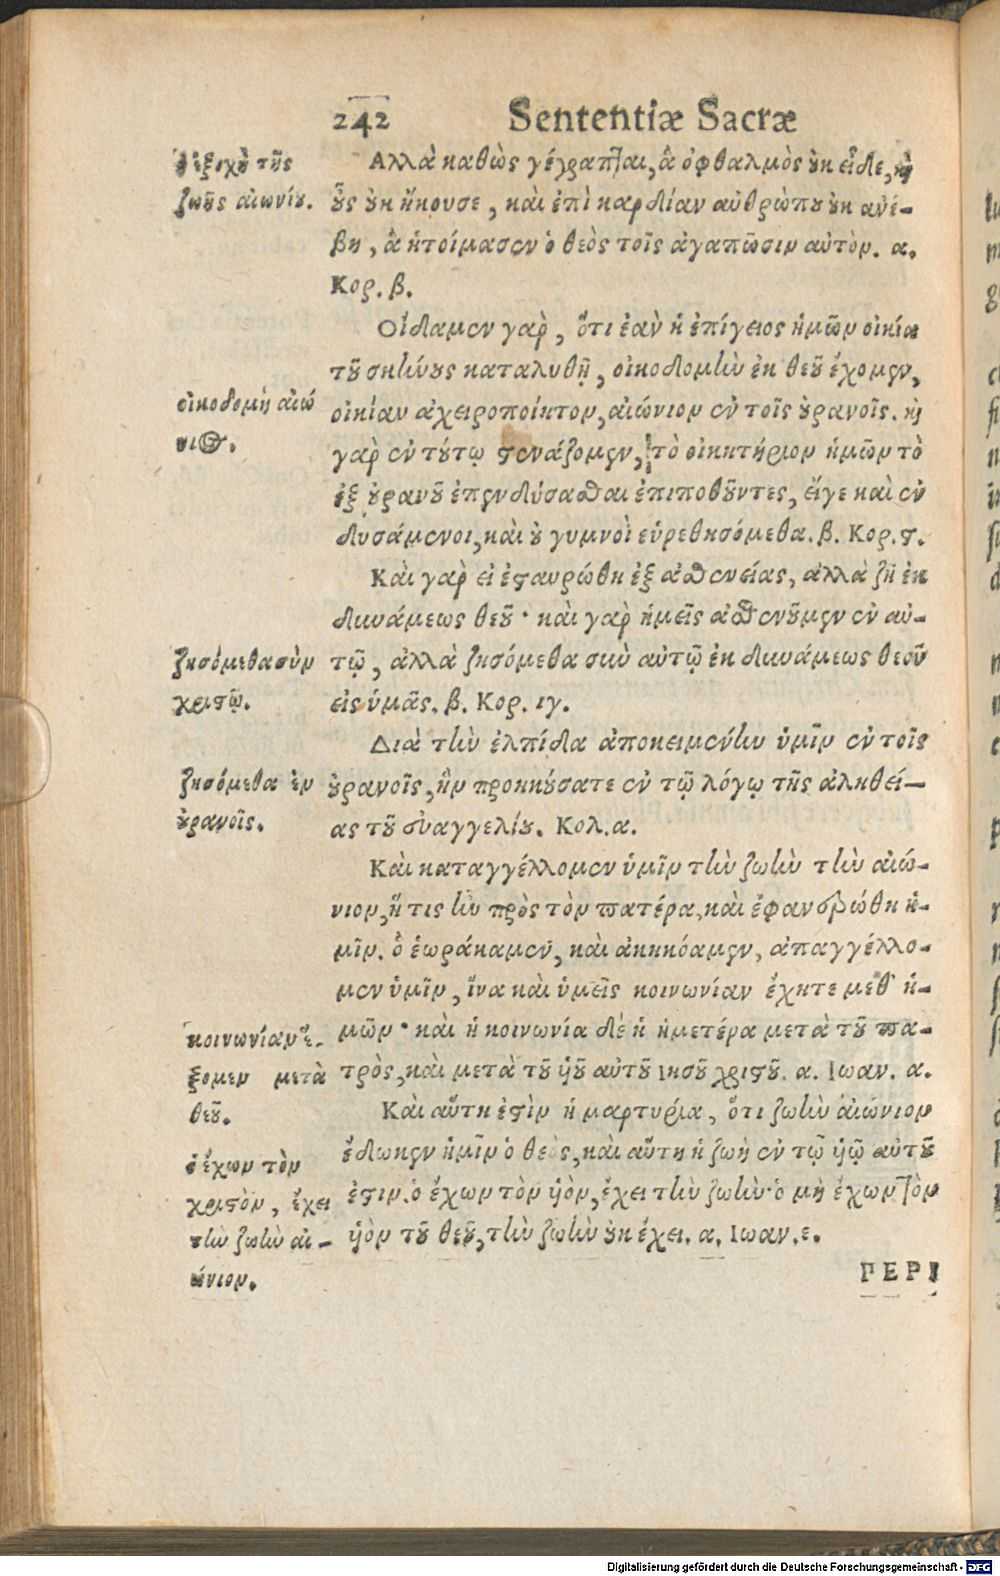 242 Sententiæ Sacræ
ἡ ἐξοχὴ τῆς
ζωῆς αἰωνίου.
Αλλὰ καθὼς γέγραπται, ἃ ὀφθαλμὸς οὐκ εἶδε, καὶ
οὖς οὐκ ἤκουσε, καὶ ἐπὶ καρδίαν ἀνθρώπου οὐκ ἀνέ-
βη, ἃ ἡτοίμασεν ὁ θεὸς τοῖς ἀγαπῶσιν αὐτὸν. α.
Κορ. β.
Οἴδαμεν γὰρ, ὅτι ἐὰν ἡ ἐπίγειος ἡμῶν οἰκία
τοῦ σκήνους καταλυθῇ, οἰκοδομὴν ἐκ θεοῦ ἔχομεν,
οἰκίαν ἀχειροποίητον, αἰώνιον ἐν τοῖς οὐρανοῖς. καὶ
γὰρ ἐν τούτῳ στενάζομεν, τὸ οἰκητήριον ἡμῶν τὸ
ἐξ οὐρανοῦ ἐπενδύσασθαι ἐπιποθοῦντες, εἴγε καὶ ἐν
δυσάμενοι, καὶ οὐ γυμνοὶ εὑρεθησόμεθα. β. Κορ. ϛ.
οἰκοδομή αἰώ
νιος.
Καὶ γὰρ εἰ ἐσταυρώθη ἐξ ἀσθενείας, ἀλλὰ ζῇ ἐκ
δυνάμεως θεοῦ· καὶ γὰρ ἡμεῖς ἀσθενοῦμεν ἐν αὐ-
τῷ, ἀλλὰ ζησόμεθα σὺν αὐτῷ ἐκ δυνάμεως θεοῦ
εἰς ὑμᾶς. β. Κορ. ιγ.
ζησόμεθα σὺν
χριστῷ.
Διὰ τὴν ἐλπίδα ἀποκειμένην ὑμῖν ἐν τοῖς
οὐρανοῖς, ἣν προηκούσατε ἐν τῷ λόγῳ τῆς ἀληθεί-
ας τοῦ εὐαγγελίου. Κολ. α.
ζησόμεθα ἐν
οὐρανοῖς.
Καὶ καταγγέλλομεν ὑμῖν τὴν ζωὴν τὴν αἰώ-
νιον, ἥ τις ἦν πρὸς τὸν πατέρα, καὶ ἐφανερώθη ἡ-
μῖν. ὃ ἑωράκαμεν, καὶ ἀκηκόαμεν, ἀπαγγέλλο-
μεν ὑμῖν, ἵνα καὶ ὑμεῖς κοινωνίαν ἔχητε μεθ' ἡ-
μῶν· καὶ ἡ κοινωνία δὲ ἡ ἡμετέρα μετὰ τοῦ πα-
τρὸς, καὶ μετὰ τοῦ ὑιοῦ αὐτοῦ Ιησοῦ χριστοῦ. α. Ιωαν. α.
κοινωνίαν ἕ-
ξομεν μετὰ
θεοῦ.
Καὶ αὕτη ἐστὶν ἡ μαρτυρία, ὅτι ζωὴν αἰώνιον
ἔδωκεν ἡμῖν ὁ θεὸς, καὶ αὕτη ἡ ζωὴ ἐν τῷ ὑιῷ αὐτοῦ
ἐστιν. ὁ ἔχων τὸν ὑιὸν, ἔχει τὴν ζωὴν· ὁ μὴ ἔχων τὸν
ὑιὸν τοῦ θεοῦ, τὴν ζωὴν οὐκ ἔχει. α. Ιωαν. ε.
ὁ ἔχων τὸν
χριστὸν, ἔχει
τὴν ζωὴν αἰ-
ώνιον.
ΠΕΡΙ
Digitalisierung gefördert durch die Deutsche Forschungsgemeinschaft - DFG